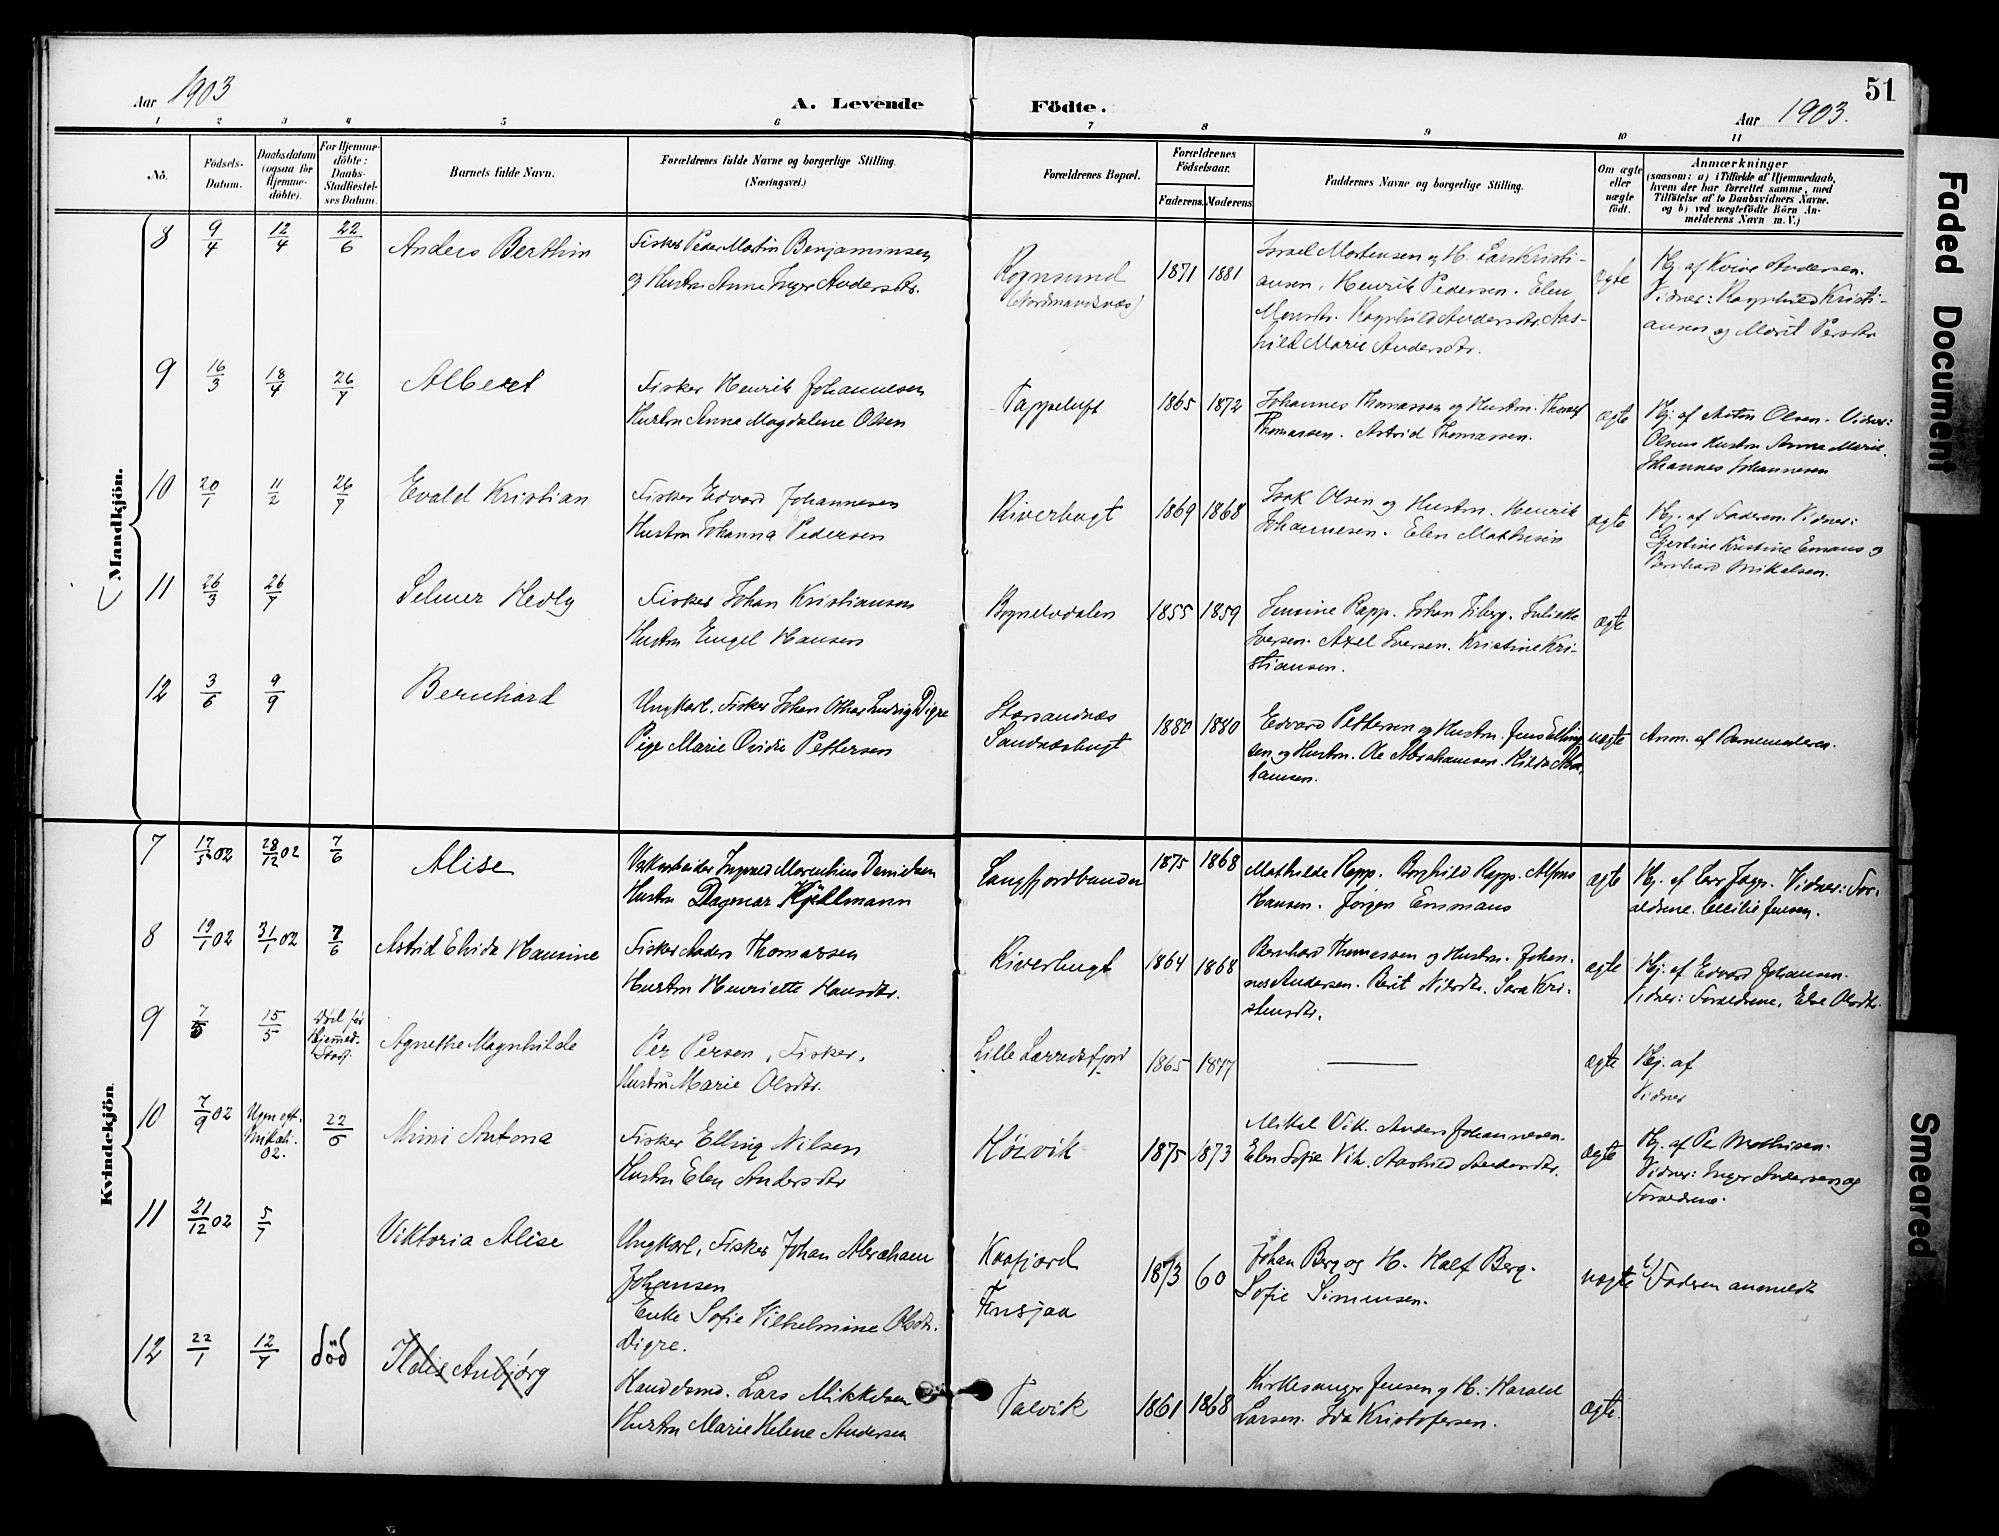 51
Aar 1903
A. Levende Födte.
Aar 1903.
1 2 3 4 5 6 7 8 9 10 11
No.
Födsels-Datum.
Daabsdatum (ogsaa for Hjemmedöbte).
For Hjemmedöbte: Daabs-Stadfæstelses Datum.
Barnets fulde Navn.
Forældrenes fulde Navne og borgerlige Stilling.
(Næringsvei.)
Forældrenes Bopæl.
Forældrenes Födselsaar.
Faderens. Moderens.
Faddernes Navne og borgerlige Stilling.
Om ægte eller uægte födt.
Anmærkninger
(saasom: a) i Tilfælde af Hjemmedaab,
hvem der har forrettet samme, med
Tilföielse af to Daabsvidners Navne,
og b) ved uægtefödte Börn Anmelderens Navn m. V.)
Mandkjön.
8 9/4 12/4 22/6 Anders Berthin
Fisker Peder Martin Benjaminsen
og Hustru Anne Inger Andersdtr.
Rognsund
(Nordmandsnæs)
1871 1881
Israel Mortensen og H. Lars Kristi-
ansen, Henrik Pedersen. Elen
Monsdtr. Ragnhild Andersdtr. Aas-
hild Marie Andersdtr.
ægte
Hj. af Kvive Andersen.
Vidner: Ragnhild Kristi-
ansen og Marit Persdtr
9 16/3 18/4 26/7 Albert
Fisker Henrik Johannesen
Hustru Anna Magdalene Olsen
Tappeluft
1865 1872
Johannes Thomassen og Hustru. Thoralf
Thomassen. Astrid Thomassen.
ægte
Hj. af Anton Olsen. Vidner:
Olsens Hustru Anne Marie.
Johannes Johannesen
10 20/1 11/2 26/7 Evald Kristian
Fisker Edvard Johannesen
Hustru Johanna Pedersen
Riverbugt
1869 1868
Isak Olsen og Hustru. Henrik
Johannesen. Elen Mathisen
ægte
Hj. af Faderen. Vidner:
Gjertine Kristine Emaus og
Bernhard Mikalsen.
11 26/3 26/7 Selmer Hedly
Fisker Johan Kristiansen
Hustru Engel Hansen
Bognelvdalen
1855 1859
Jensine Rapp. Johan Iberg. Juliette
Iversen. Axel Iversen. Kristine Kri-
stiansen.
ægte
12 3/6 9/9 Bernhard
Ungkarl. Fisker Johan Othar Ludvig Digre
Pige Marie Ovidie Pettersen
Storsandnæs
Sandnæsbugt
1880 1880
Edvard Pettersen og Hustru. Jens Elling
sen og Hustru. Ole Abrahamsen. Hilda Abra-
hamsen.
uægte
Anm. af Barnemoderen.
Kvindekjön.
7 17/5 02 28/12 02 7/6 Alise
Ingvald Martinius Danielsen
Hustru Dagmar Kjellmann
Langfjordbunden
1875 1868
Mathilde Rapp. Borghild Rapp. Alfons
Hansen. Jørgen Emmaus
ægte
Hj. af Vidner: For-
ældrene. Ellilie Jensen.
8 19/1 02 31/1 02 7/6 Astrid Elvida Hansine
Fisker Anders Thomassen
Hustru Henriette Hansdtr.
Riverbugt
1864 1868
Bernhard Thomassen og Hustru. Johan-
nes Andersen. Berit Nilsdtr. Sara Kri-
stensdtr.
ægte
Hj. af Edvard Johansen.
Vidner: Forældrene, Else Olsdtr.
9 7/5 15/5 Død før Hjemmed. Stadf. Agnethe Magnhilde
Per Persen, Fisker,
Hustru Marie Olsdtr.
Lille Lerredsfjord
1865 1877
—
ægte
Hj. af
Vidner
10 7/9 02 Ugen eft. Mikali. 02. 22/6 Mimi Antona
Fisker Elling Nilsen
Hustru Elen Andersdtr
Hørvik
1875 1873
Mikal Vik. Anders Johannesen.
Elen Sofie Vik. Aashild Andersdtr.
ægte
Hj. af Per Mathisen.
Vidner: Inger Andersen og
Forældrene.
11 21/12 02 5/7 Viktoria Alise
Ungkarl, Fisker Johan Abraham
Johansen
Enke Sofie Vilhelmine Olsdtr.
Digre.
Kaafjord
1873 60
Johan Berg og H. Half Berg.
Sofie Simensen.
uægte
Faderen anmeldt
12 22/1 12/7 död Anbjørg
Handelsmd. Lars Mikkelsen
Hustru Marie Helene Andersen
Talvik
1861 1868
Kirkesanger Jensen og H. Harald
Larsen. Ida Kristofersen.
ægte.
Faded Document
Smeared